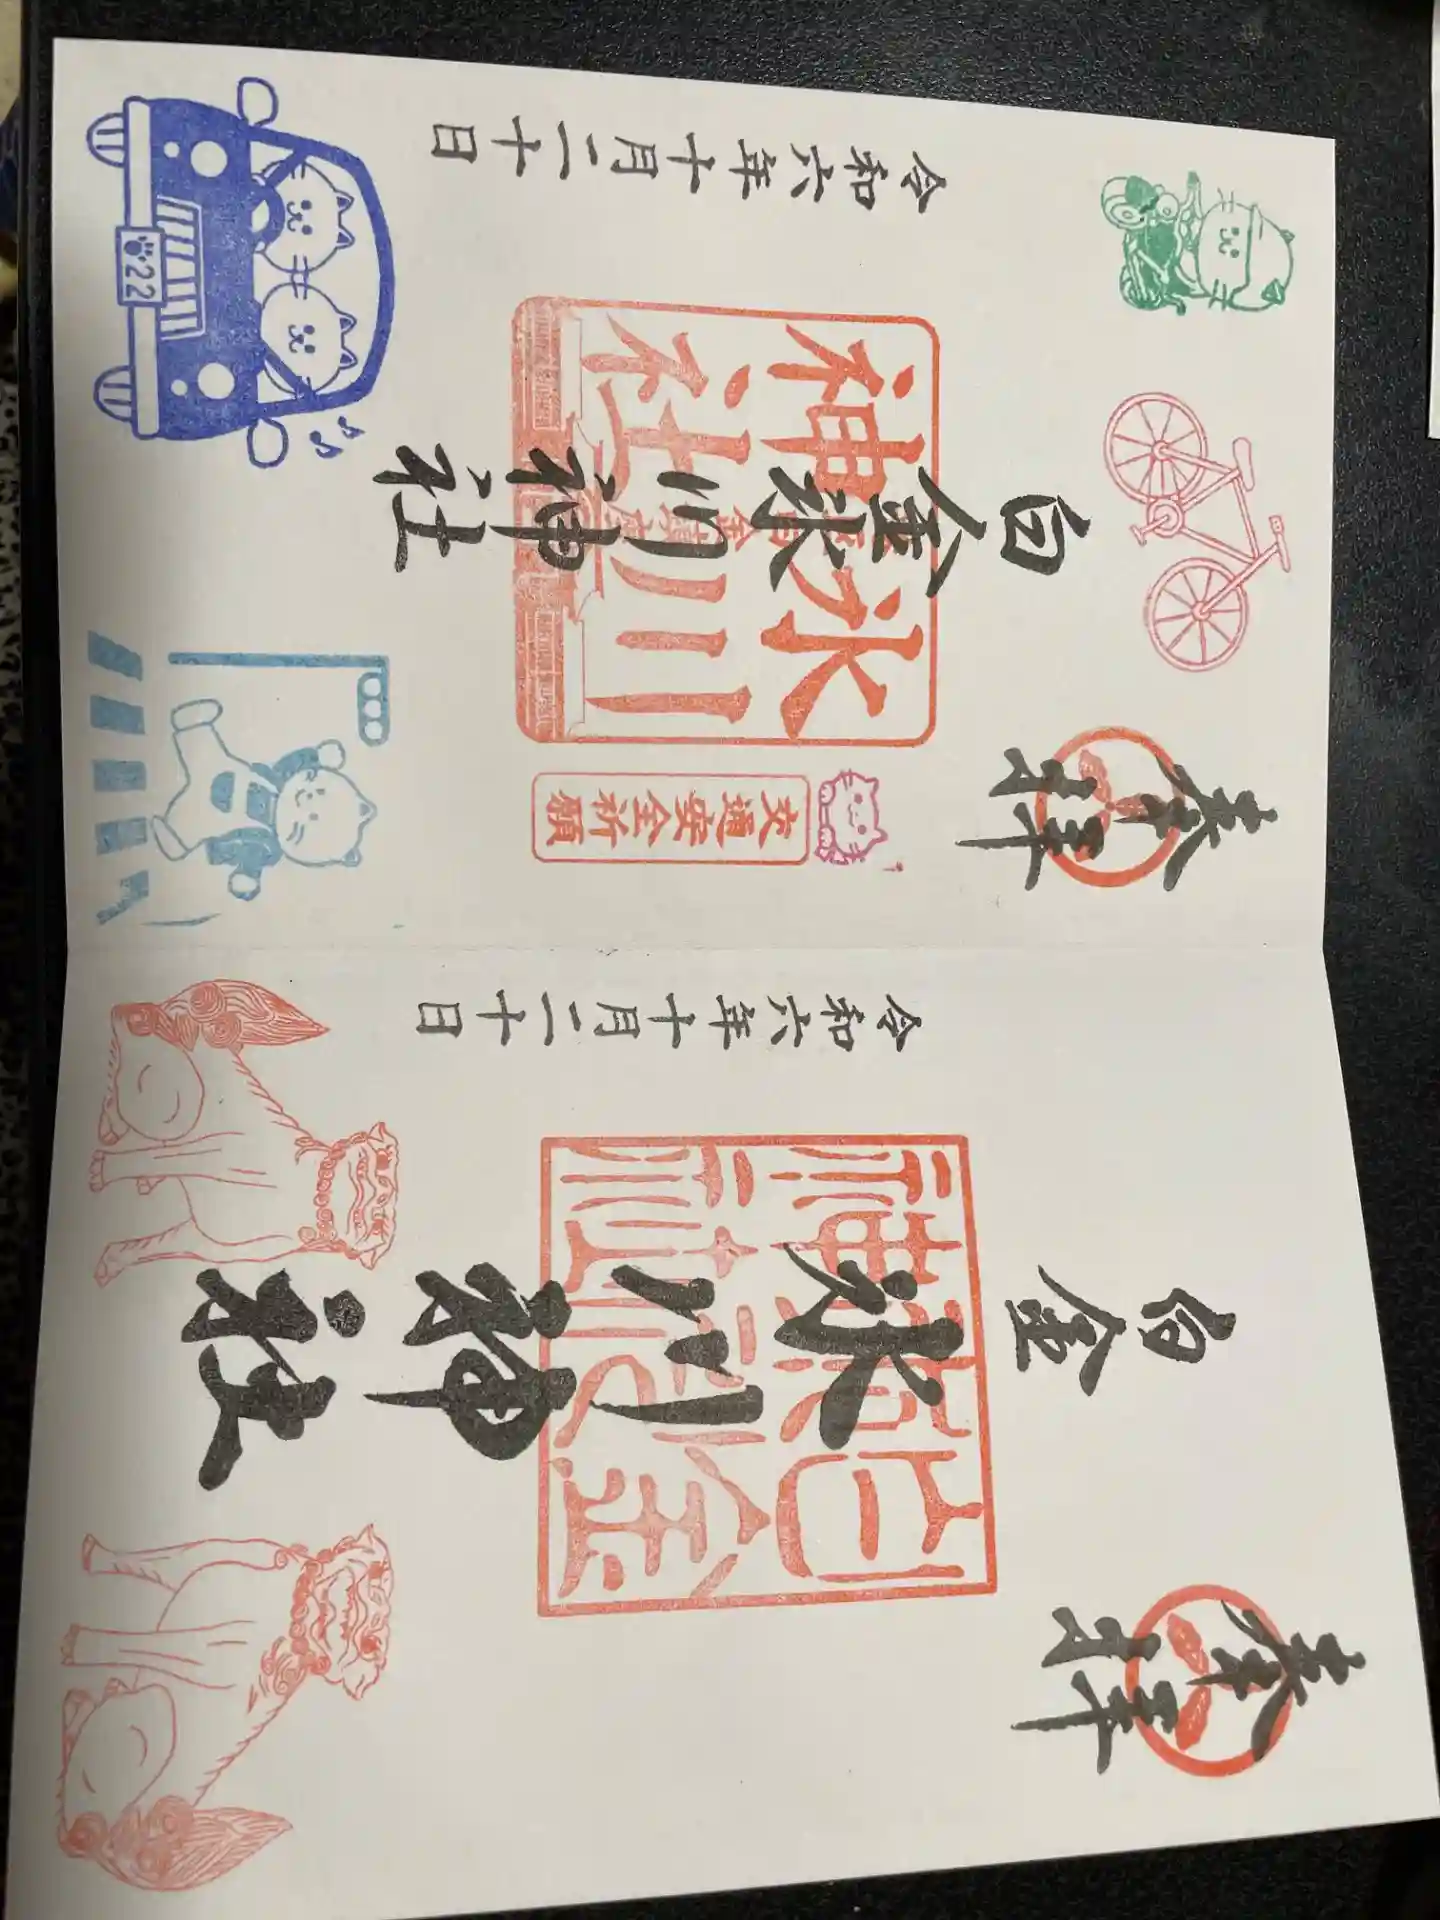 奉拝
白金
氷川神社
令和六年十月二十日
奉拝
交通安全祈願
白金氷川神社
氷川
神社
令和六年十月二十日
22